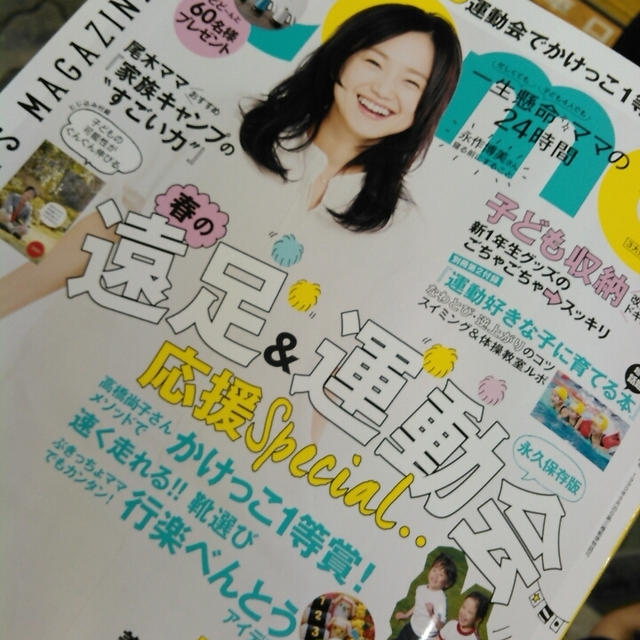 S MAGAZIN
60名様
プレゼント
運動会でかけっこ1等
尾木ママおすすめ
"家族キャンプの
すごい力"
子どもの
可能性が
ぐんぐん伸びる
一生懸命ママの
24時間
永作博美さん
春の
遠足&運動会
応援Special..
永久保存版
子ども収納
新1年生グッズの
ごちゃごちゃ→スッキリ
「運動好きな子に育てる本
のコツ
スイミング&体操教室ルポ
高橋尚子さん
メソッドで
かけっこ1等賞!
速く走れる!!靴選び
ぶきっちょママ
でもカンタン!
行楽べんとう
アイデ